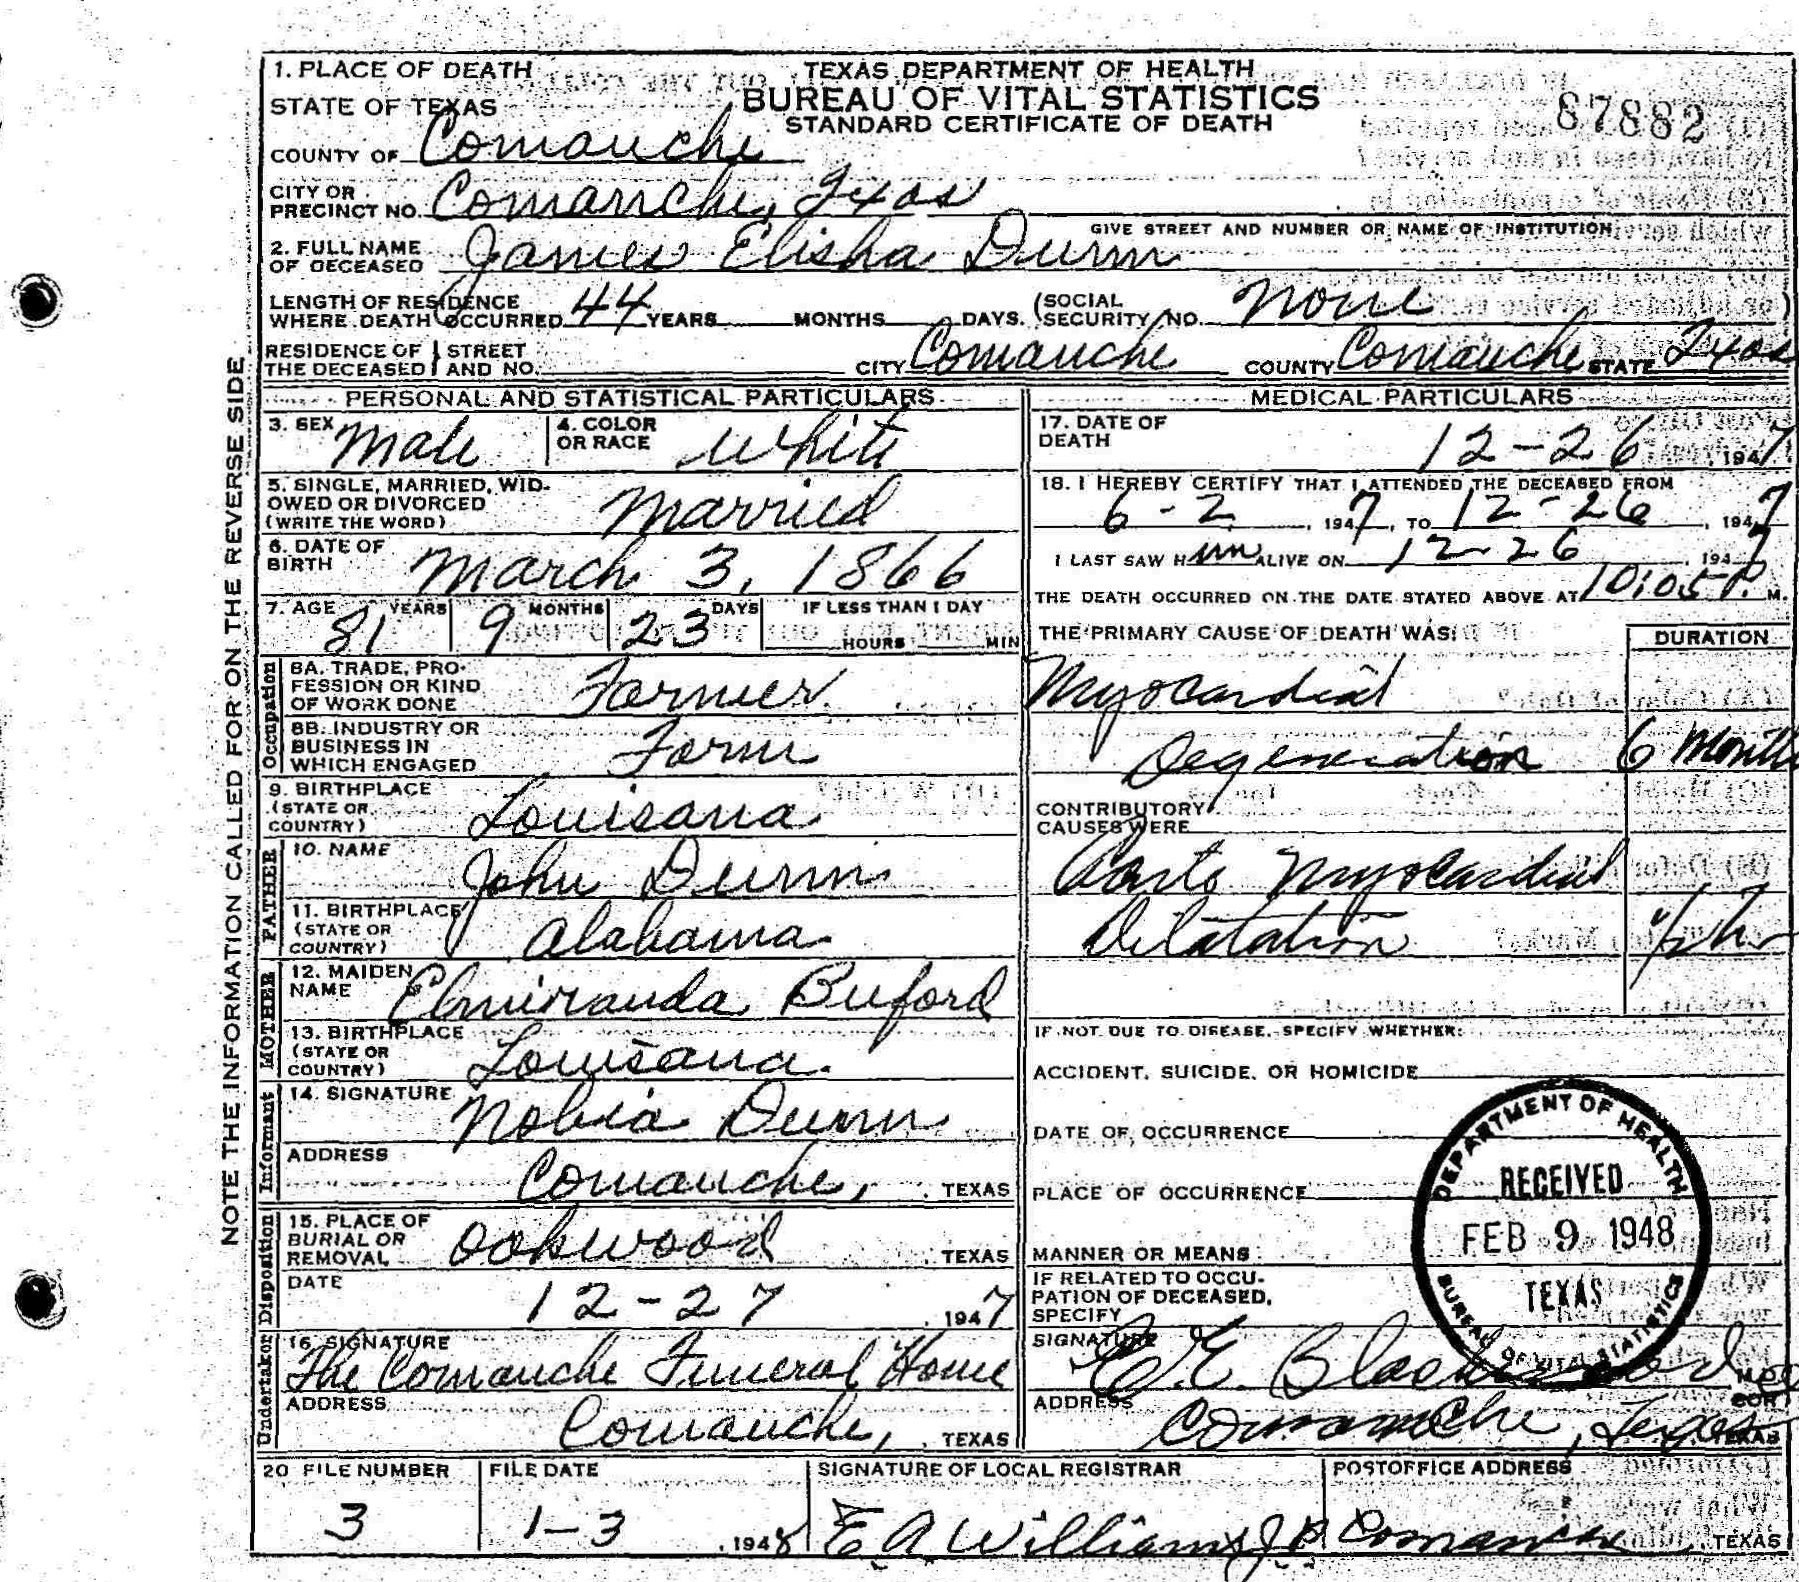 1. PLACE OF DEATH
STATE OF TEXAS
TEXAS DEPARTMENT OF HEALTH
BUREAU OF VITAL STATISTICS
STANDARD CERTIFICATE OF DEATH
87882
COUNTY OF Comanche
CITY OR PRECINCT NO. Comanche, Texas
GIVE STREET AND NUMBER OR NAME OF INSTITUTION
2. FULL NAME OF DECEASED James Elisha Dunn
LENGTH OF RESIDENCE WHERE DEATH OCCURRED 44 YEARS MONTHS DAYS. (SOCIAL SECURITY NO. None )
RESIDENCE OF THE DECEASED STREET AND NO. CITY Comanche COUNTY Comanche STATE Texas
NOTE THE INFORMATION CALLED FOR ON THE REVERSE SIDE
PERSONAL AND STATISTICAL PARTICULARS
3. SEX Male
4. COLOR OR RACE White
5. SINGLE, MARRIED, WIDOWED OR DIVORCED (WRITE THE WORD) Married
6. DATE OF BIRTH March 3, 1866
7. AGE 81 YEARS 9 MONTHS 23 DAYS IF LESS THAN 1 DAY HOURS MIN
Occupation
8A. TRADE, PROFESSION OR KIND OF WORK DONE Farmer
8B. INDUSTRY OR BUSINESS IN WHICH ENGAGED Farm
9. BIRTHPLACE (STATE OR COUNTRY) Louisana
FATHER
10. NAME John Dunn
11. BIRTHPLACE (STATE OR COUNTRY) Alabama
MOTHER
12. MAIDEN NAME Elmiranda Buford
13. BIRTHPLACE (STATE OR COUNTRY) Louisana
Informant
14. SIGNATURE Nobia Dunn
ADDRESS Comanche, TEXAS
Disposition
15. PLACE OF BURIAL OR REMOVAL Oakwood TEXAS
DATE 12-27 1947
Undertaker
16. SIGNATURE The Comanche Funeral Home
ADDRESS Comanche, TEXAS
MEDICAL PARTICULARS
17. DATE OF DEATH 12-26 1947
18. I HEREBY CERTIFY THAT I ATTENDED THE DECEASED FROM
6-2, 1947, TO 12-26, 1947
I LAST SAW Him ALIVE ON 12-26, 1947
THE DEATH OCCURRED ON THE DATE STATED ABOVE AT 10:05 P. M.
THE PRIMARY CAUSE OF DEATH WAS: DURATION
Myocardial
Degeneration 6 Months
CONTRIBUTORY CAUSES WERE
Myocardial
Dilatation
IF NOT DUE TO DISEASE, SPECIFY WHETHER:
ACCIDENT, SUICIDE, OR HOMICIDE
DATE OF OCCURRENCE
PLACE OF OCCURRENCE
MANNER OR MEANS
IF RELATED TO OCCUPATION OF DECEASED, SPECIFY
DEPARTMENT OF HEALTH
RECEIVED
FEB 9 1948
TEXAS
BUREAU OF VITAL STATISTICS
SIGNATURE E.E.
ADDRESS Comanche, Texas TEXAS
20 FILE NUMBER 3
FILE DATE 1-3, 1948
SIGNATURE OF LOCAL REGISTRAR E A Williams J.P.
POSTOFFICE ADDRESS Comanche TEXAS